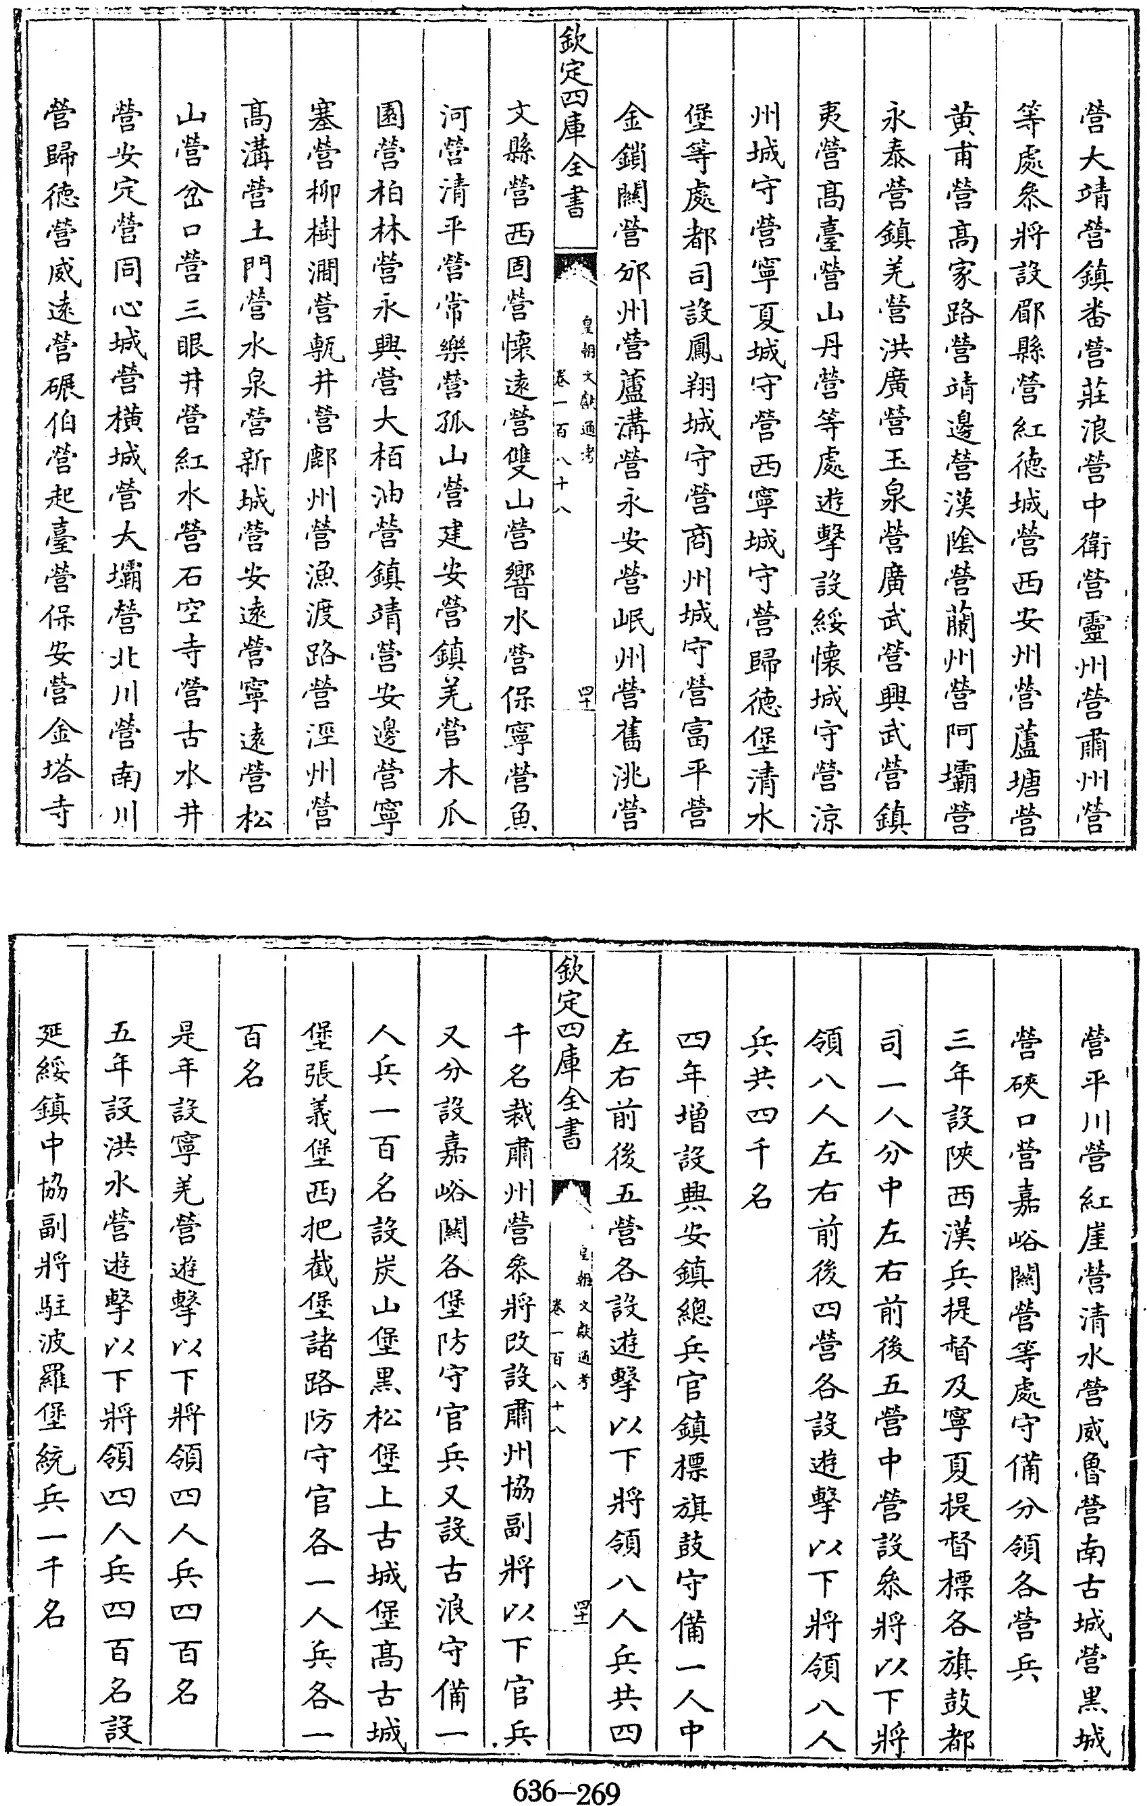 營大靖營鎮番營莊浪營中衛營靈州營肅州營
等處叅將設郿縣營紅德城營西安州營蘆塘營
黃甫營高家路營靖邊營漢陰營蘭州營阿壩營
永泰營鎮羌營洪廣營玉泉營廣武營興武營鎮
夷營高臺營山丹營等處遊擊設綏懷城守營涼
州城守營寧夏城守營西寧城守營歸德堡清水
堡等處都司設鳳翔城守營商州城守營富平營
金鎖關營邠州營蘆溝營永安營岷州營舊洮營
欽定四庫全書
皇朝文獻通考
卷一百八十八
四十
文縣營西固營懷遠營雙山營響水營保寧營魚
河營清平營常樂營孤山營建安營鎮羌營木瓜
園營柏林營永興營大栢油營鎮靖營安邊營寧
塞營柳樹澗營甎井營鄜州營漁渡路營涇州營
高溝營土門營水泉營新城營安遠營寧遠營松
山營岔口營三眼井營紅水營石空寺營古水井
營安定營同心城營橫城營大壩營北川營南川
營歸德營威遠營碾伯營起臺營保安營金塔寺
營平川營紅崖營清水營威魯營南古城營黑城
營硤口營嘉峪關營等處守備分領各營兵
三年設陜西漢兵提督及寧夏提督標各旗鼓都
司一人分中左右前後五營中營設叅將以下將
領八人左右前後四營各設遊擊以下將領八人
兵共四千名
四年增設興安鎮總兵官鎮標旗鼓守備一人中
左右前後五營各設遊擊以下將領八人兵共四
欽定四庫全書
皇朝文獻通考
卷一百八十八
四十一
千名裁肅州營叅將改設肅州協副將以下官兵
又分設嘉峪關各堡防守官兵又設古浪守備一
人兵一百名設炭山堡黑松堡上古城堡高古城
堡張義堡西把截堡諸路防守官各一人兵各一
百名
是年設寧羌營遊擊以下將領四人兵四百名
五年設洪水營遊擊以下將領四人兵四百名設
延綏鎮中協副將駐波羅堡統兵一千名
636-269